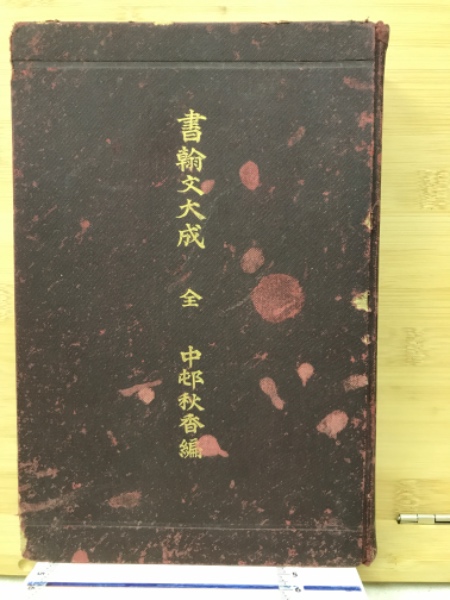 書翰文大成 全 中邨秋香編